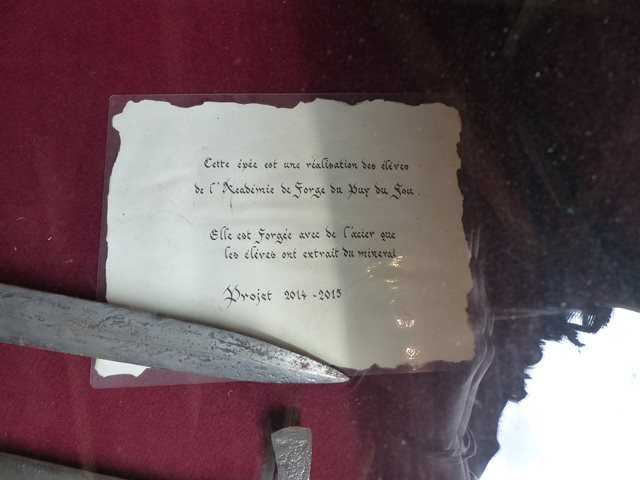 Cette épée est une réalisation des élèves
de l'Académie de Forge du Puy du Fou.
Elle est forgée avec de l'acier que
les élèves ont extrait du minerai.
Projet 2014-2015